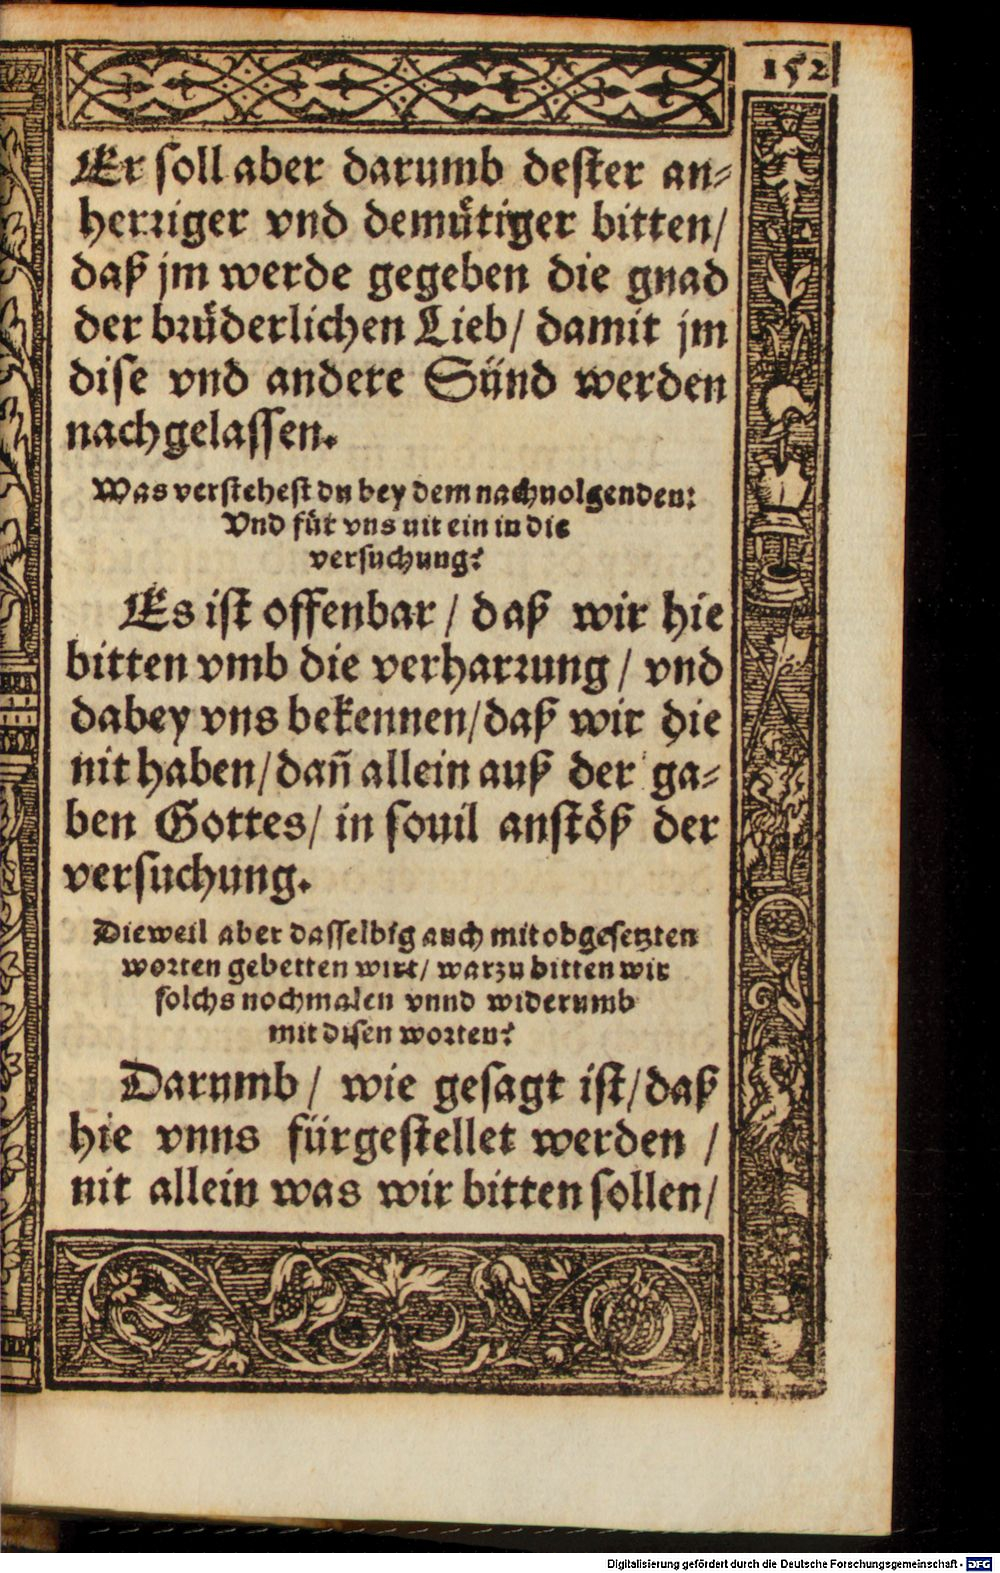 152
Er soll aber darumb dester an⸗
herziger vnd demütiger bitten/
daß jm werde gegeben die gnad
der brüderlichen Lieb/ damit jm
dise vnd andere Sünd werden
nachgelassen.
Was verstehest du bey dem nachuolgenden:
Vnd für vns nit ein in die
versuchung?
Es ist offenbar / daß wir hie
bitten vmb die verharrung / vnd
dabey vns bekennen/daß wir die
nit haben/dañ allein auß der ga⸗
ben Gottes/ in souil anstöß der
versuchung.
Dieweil aber dasselbig auch mit obgesetzten
worten gebetten wirt/ warzu bitten wir
solchs nochmalen vnnd widerumb
mit disen worten?
Darumb / wie gesagt ist/daß
hie vnns fürgestellet werden /
nit allein was wir bitten sollen/
Digitalisierung gefördert durch die Deutsche Forschungsgemeinschaft - DFG